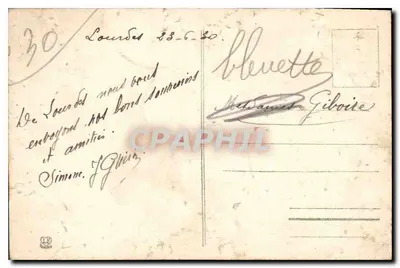 30
Lourdes 23-6-30
De Lourdes nous vous
envoyons nos bons souvenirs
et amitiés.
Simone, J
bleuette
Mesdames Giboire
Delcampe.net